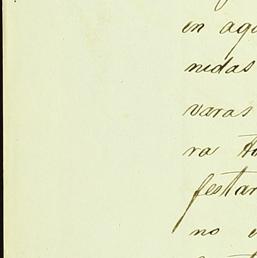 en aqu
nidas
varas
ra
festar
no